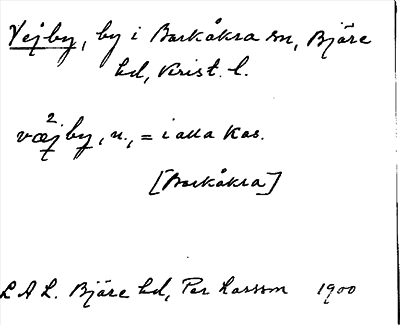 Vejby, by i Barkåkra sn, Bjäre
hd, Krist. l.
væ²jby, n., = i alla kas.
[Barkåkra]
L A L. Bjäre hd, Per Larsson 1900